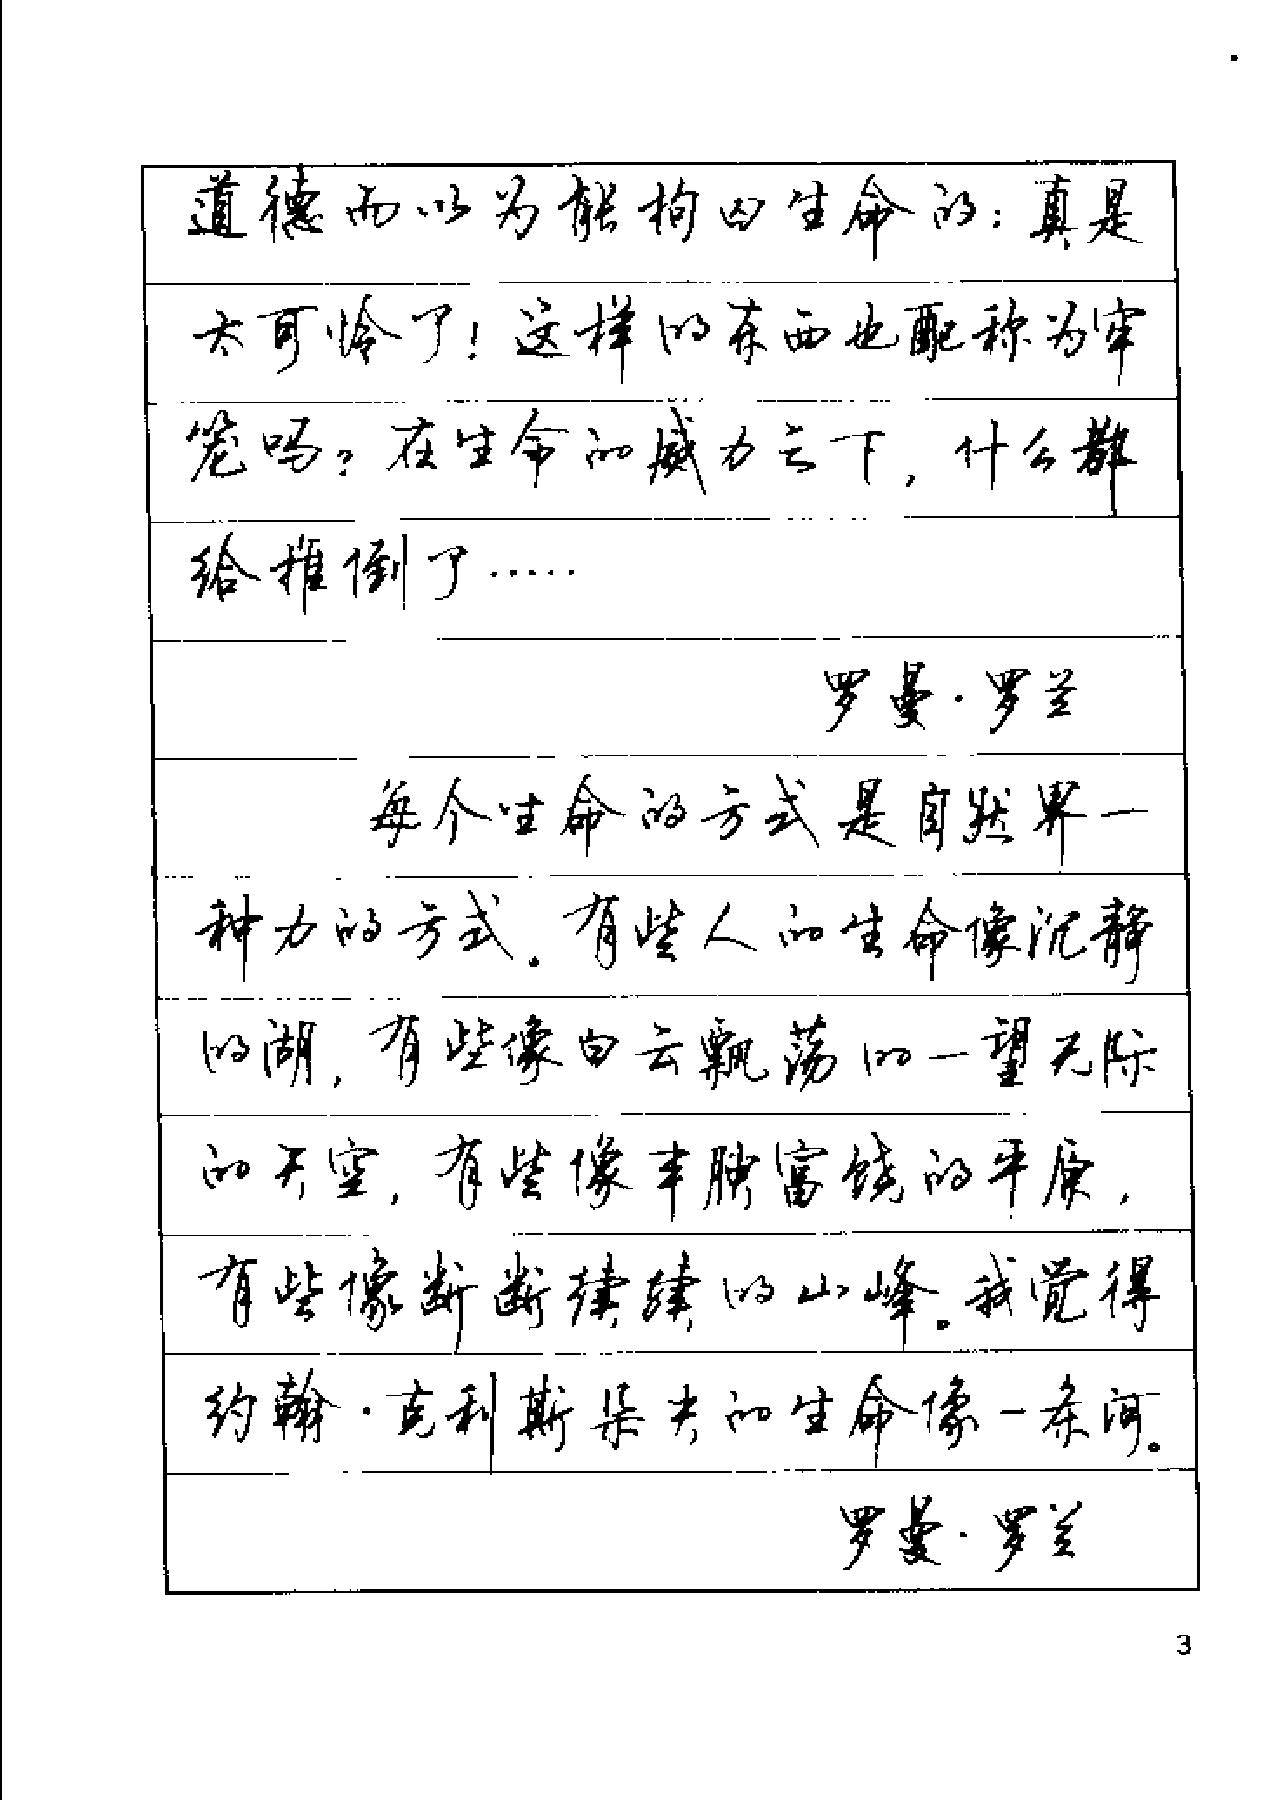 道德而以为能拘囚生命的：真是
太可怜了！这样的东西也配称为牢
笼吗？在生命的威力之下，什么都
给推倒了……
罗曼·罗兰
每个生命的方式是自然界一
种力的方式。有些人的生命像沉静
的湖，有些像白云飘荡的一望无际
的天空，有些像丰腴富饶的平原，
有些像断断续续的山峰。我觉得
约翰·克利斯朵夫的生命像一条河。
罗曼·罗兰
3